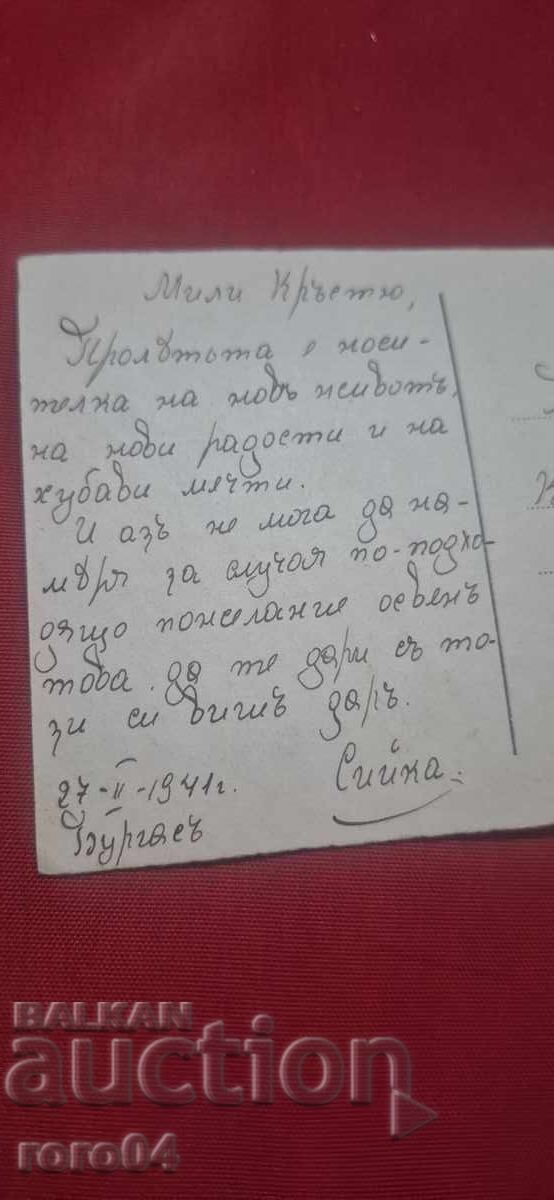 Мили Кръстю,
Пролѣтьта е носи-
телка на новъ животъ,
на нови радости и на
хубави мечти.
И азъ не мога да на-
мѣря за случая по-подхо-
дящо пожелание освенъ
това да те дари съ то-
зи си вишъ даръ.
27-II-1941г.
Сийка
Бургасъ
BALKAN
auction
roro04